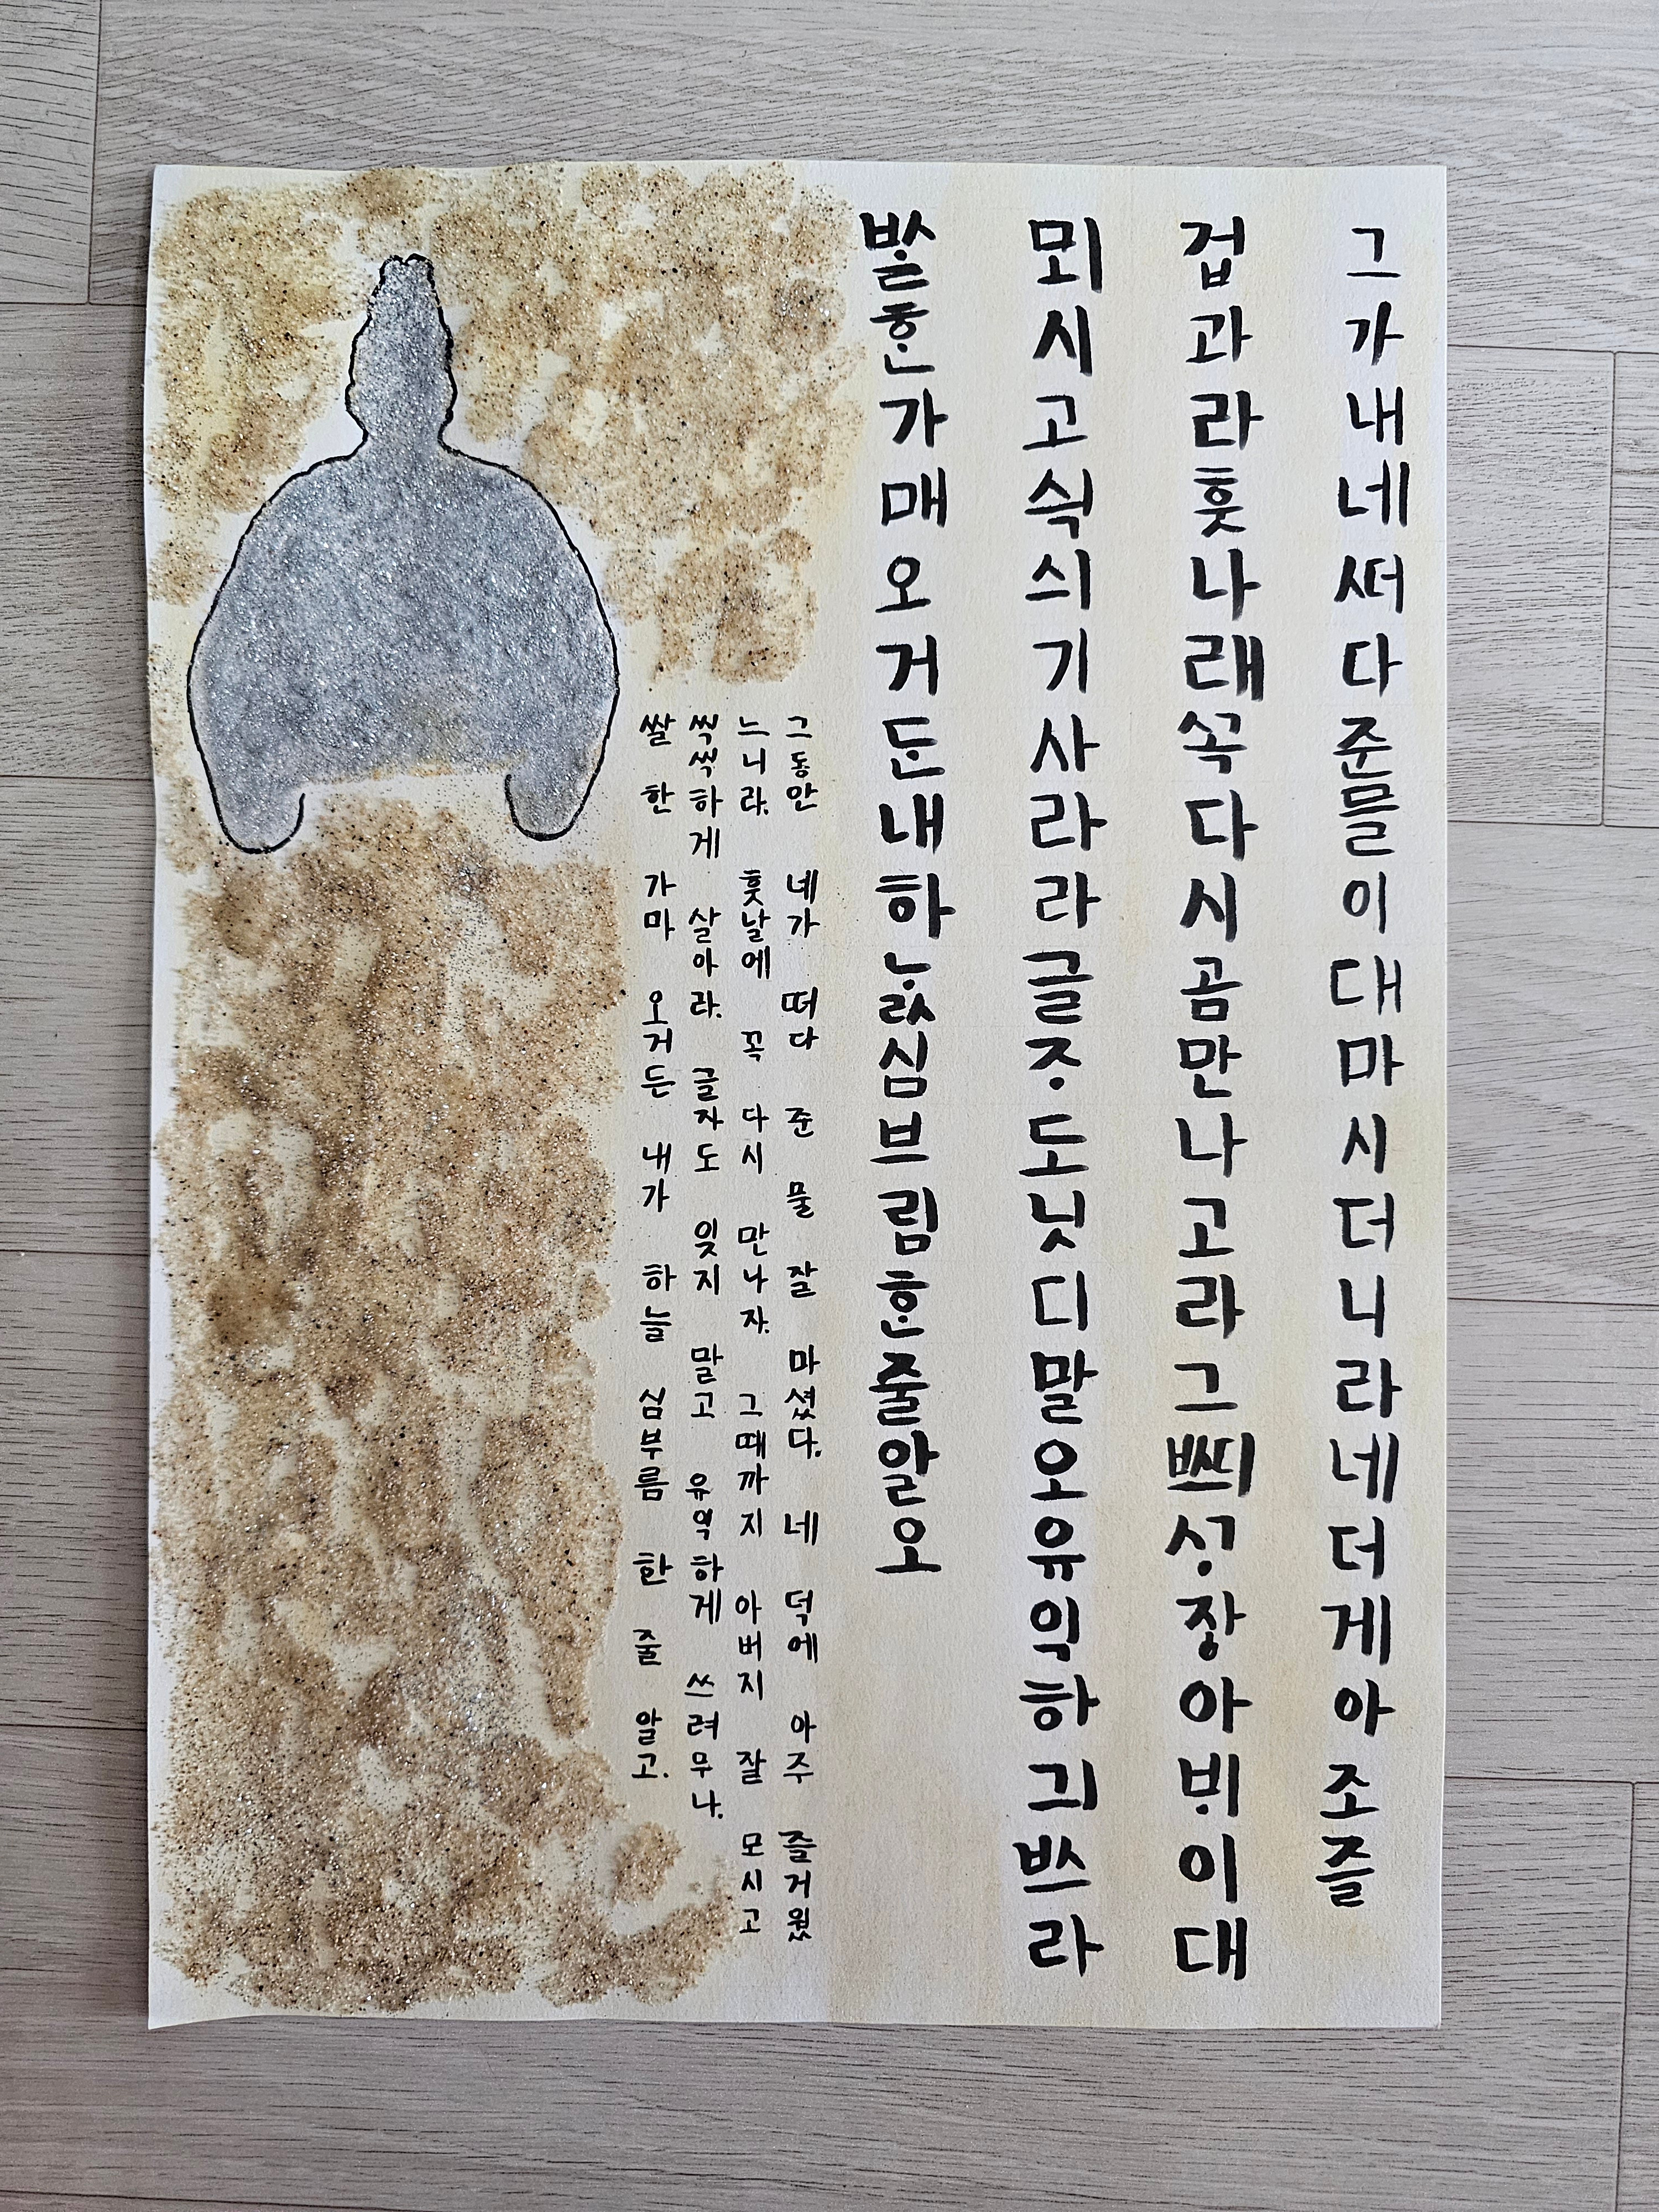 그가내네ᄯᅥ다준믈이대마시더니라네더게아조즐
겁과라훗나래ᄭᅩᆨ다시곰만나고라그ᄣᅴᄭᆞ장아ᄇᆡ이대
뫼시고싁싀기사라라글ᄌᆞ도닛디말오유익하긔ᄡᅳ라
ᄡᆞᆯᄒᆞᆫ가매오거ᄃᆞᆫ내하ᄂᆞᆳ심브림ᄒᆞᆫ줄알오
그동안 네가 떠다 준 물 잘 마셨다. 네 덕에 아주 즐거웠
느니라. 훗날에 꼭 다시 만나자. 그때까지 아버지 잘 모시고
씩씩하게 살아라. 글자도 잊지 말고 유익하게 쓰려무나.
쌀 한 가마 오거든 내가 하늘 심부름 한 줄 알고.